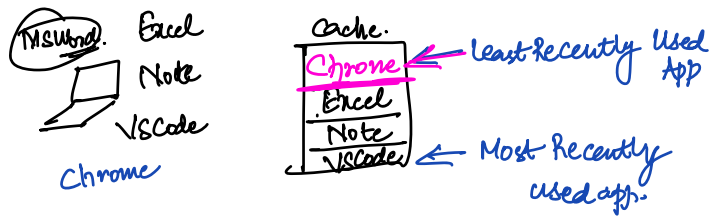 MSWord. Excel
Note
VSCode
Chrome
Cache.
Chrome
Excel
Note
VSCode
Least Recently Used
App
Most Recently
used app.